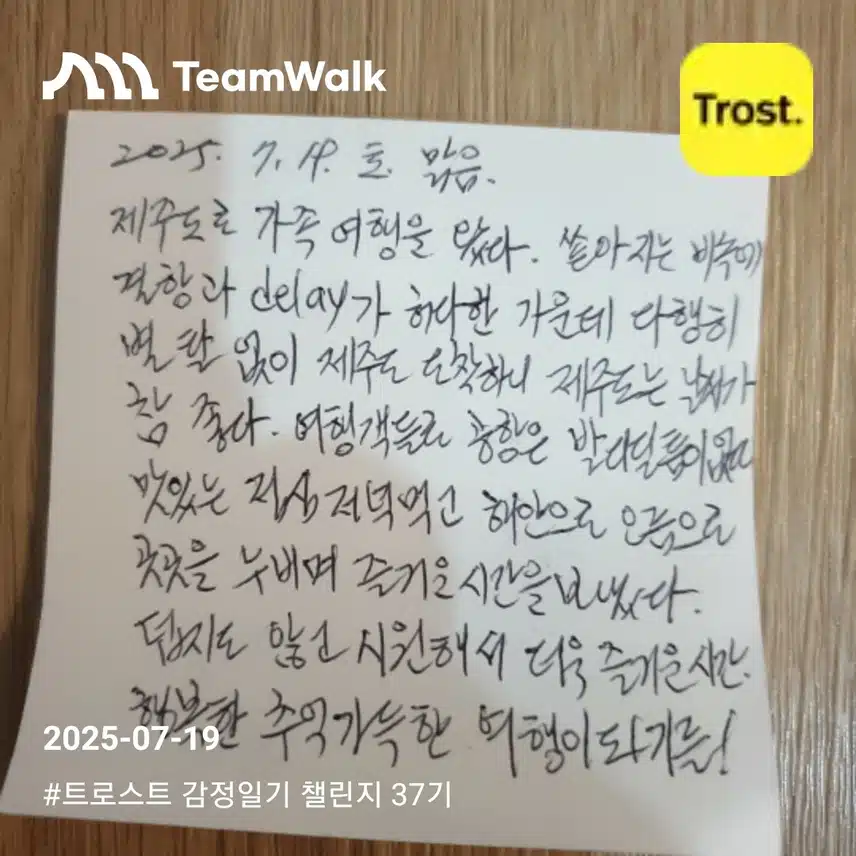 TeamWalk
Trost.
2025. 7. 19. 토. 맑음.
제주도로 가족 여행을 왔다. 쏟아지는 비속에
결항과 delay가 허다한 가운데 다행히
별 탈 없이 제주도 도착하니 제주도는 날씨가
참 좋다. 여행객들로 공항은 발 디딜 틈이 없고
맛있는 점심 저녁먹고 해안으로 오름으로
곳곳을 누비며 즐거운 시간을 보냈다.
덥지도 않고 시원해서 더욱 즐거운 시간.
행복한 추억가득한 여행이 되기를!
2025-07-19
#트로스트 감정일기 챌린지 37기